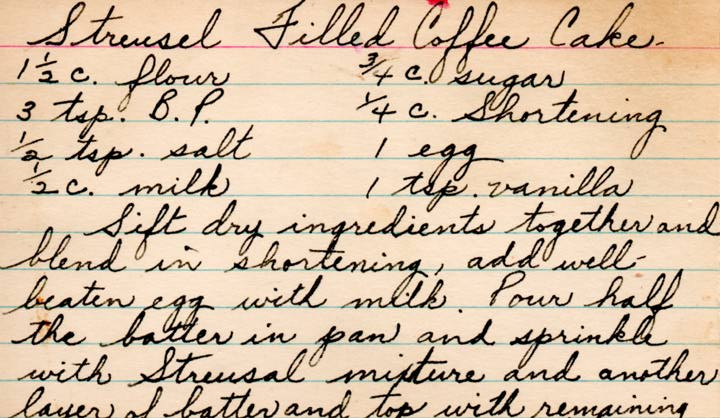 Streusel Filled Coffee Cake-
1 1/2 c. flour 3/4 c. sugar
3 tsp. B.P. 1/4 c. Shortening
1/2 tsp. salt 1 egg
1/2 c. milk 1 tsp. vanilla
Sift dry ingredients together and
blend in shortening, add well-
beaten egg with milk. Pour half
the batter in pan and sprinkle
with Streusal mixture and another
layer of batter and top with remaining